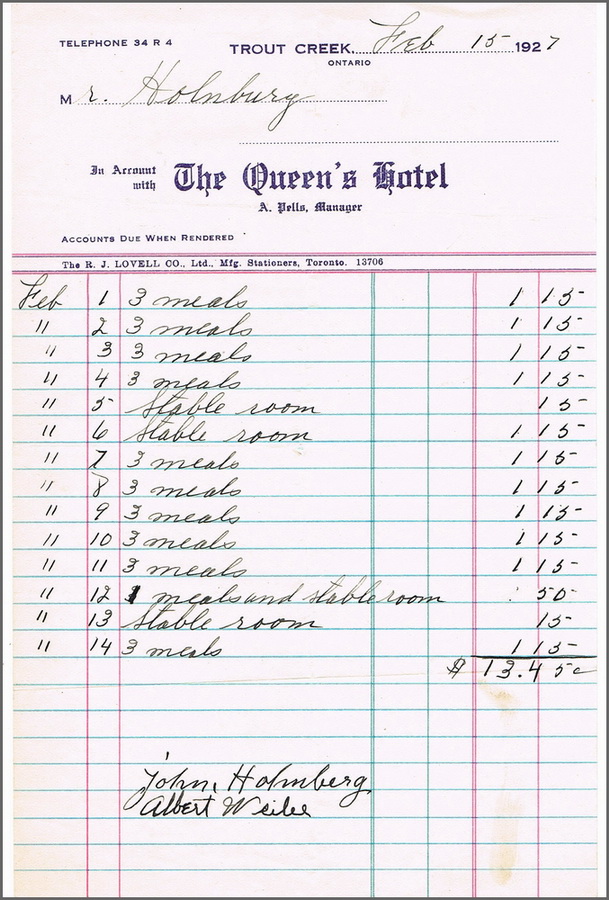 TELEPHONE 34 R 4
TROUT CREEK, Feb 15 1927
ONTARIO
Mr. Holnbury
In Account with The Queen's Hotel
A. Pells, Manager
ACCOUNTS DUE WHEN RENDERED
The R. J. LOVELL CO., Ltd., Mfg. Stationers, Toronto. 13706
Feb 1 3 meals 1 15
" 2 3 meals 1 15
" 3 3 meals 1 15
" 4 3 meals 1 15
" 5 Stable room 15
" 6 Stable room 1 15
" 7 3 meals 1 15
" 8 3 meals 1 15
" 9 3 meals 1 15
" 10 3 meals 1 15
" 11 3 meals 1 15
" 12 1 meals and stable room 50
" 13 Stable room 15
" 14 3 meals 1 15
$ 13.45c
John, Holmberg
Albert Weibe